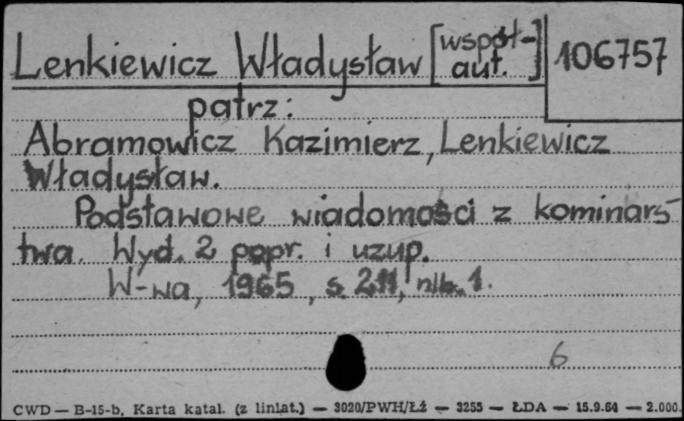 Lenkiewicz Władysław [współ-
aut.]
106757
patrz:
Abramowicz Kazimierz, Lenkiewicz
Władysław.
Podstawowe wiadomości z kominars-
twa. Wyd. 2 popr. i uzup.
W-wa, 1965, s. 211, nlb. 1.
6
CWD — B-15-b, Karta katal. (z liniat.) — 3020/PWH/Łź — 3255 — ŁDA — 15.9.64 — 2.000.